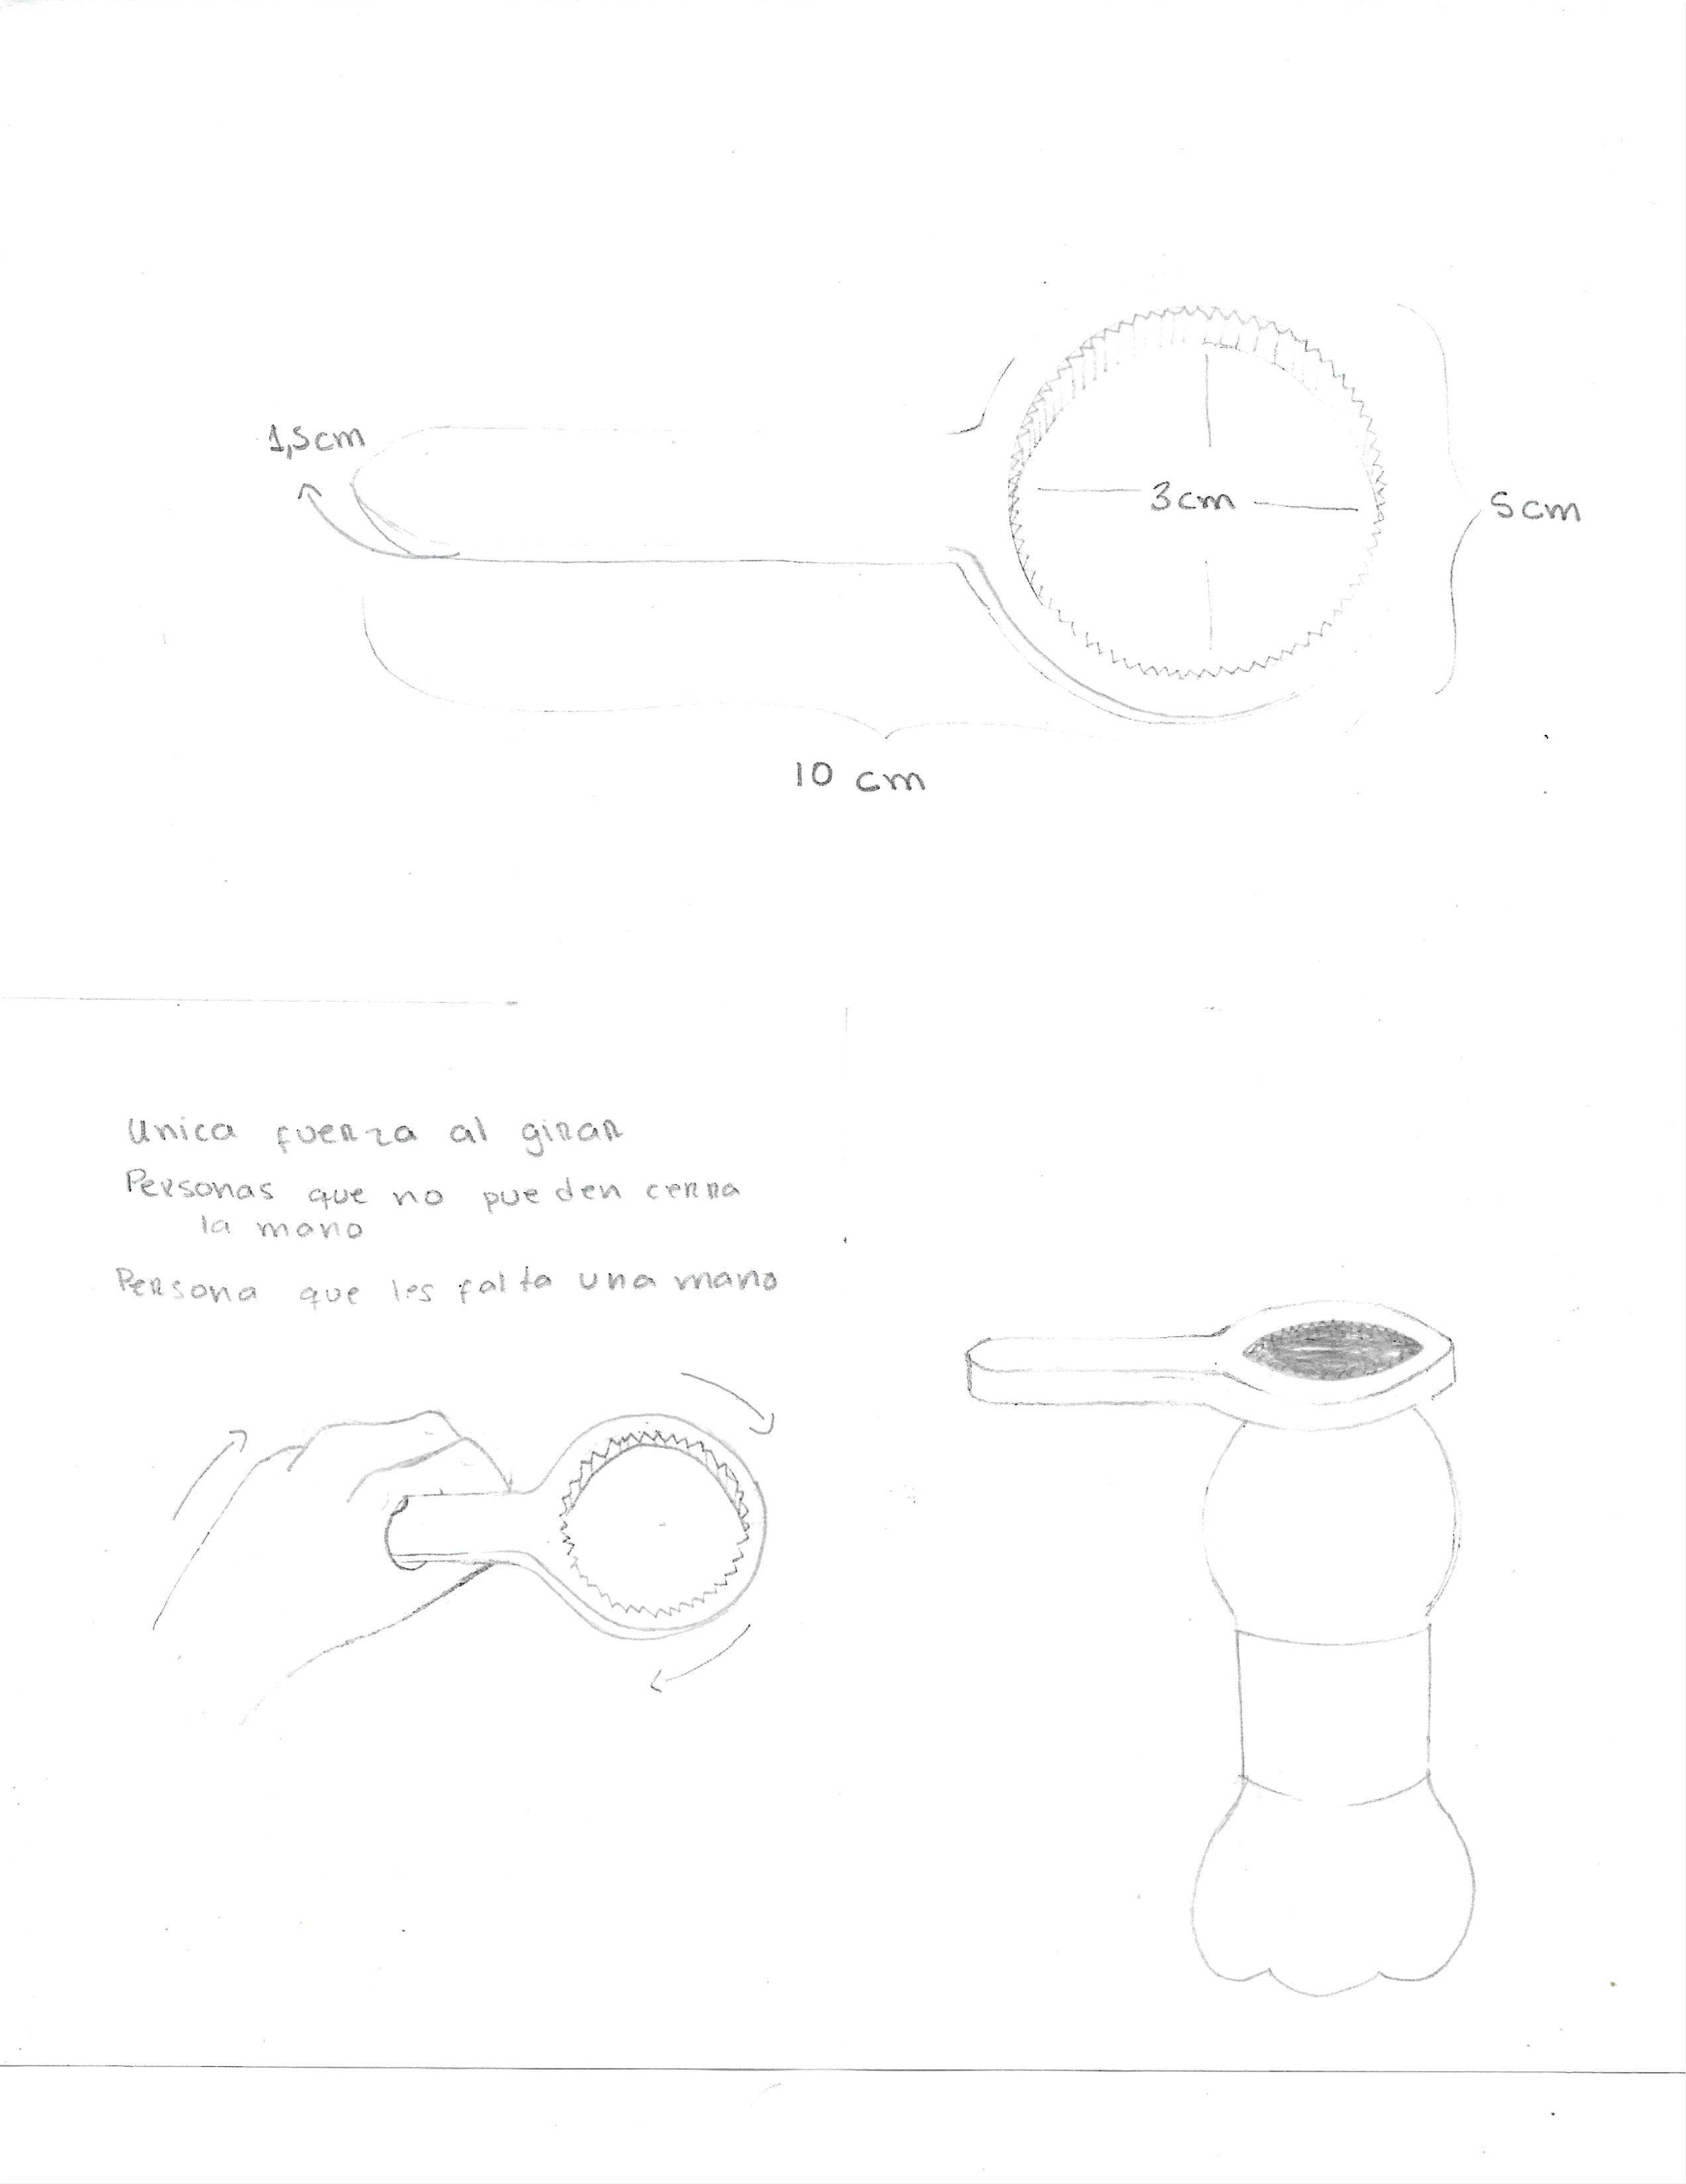 1,5cm
3cm
5cm
10 cm
Unica fuerza al girar
Personas que no pueden cerra
la mano
Persona que les falta una mano